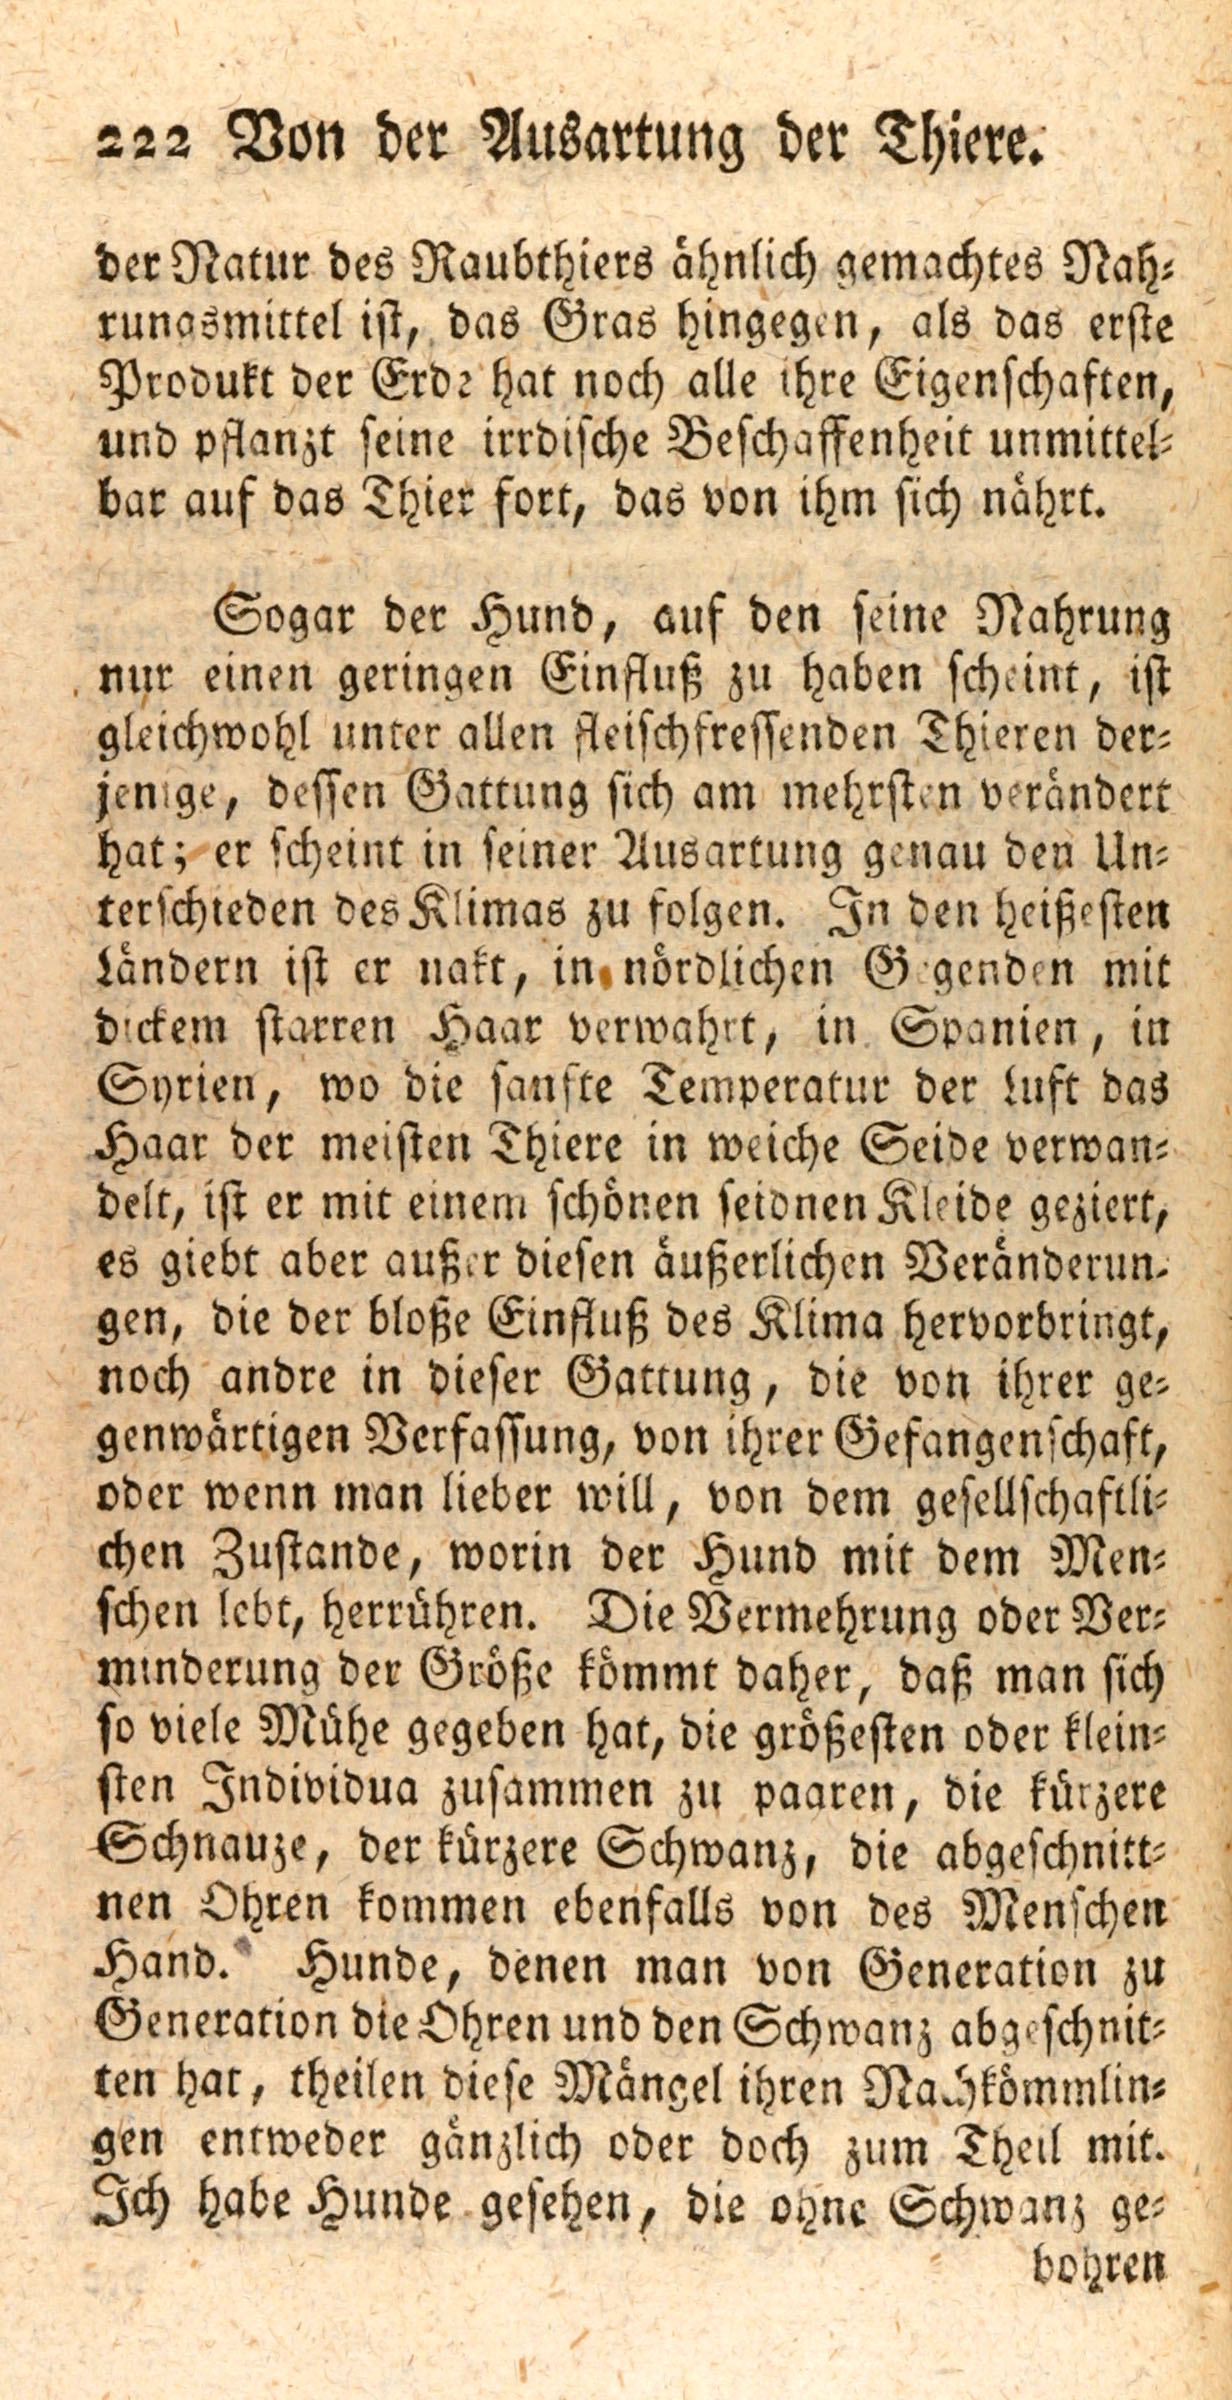 222 Von der Ausartung der Thiere.
der Natur des Raubthiers ähnlich gemachtes Nah-
rungsmittel ist, das Gras hingegen, als das erste
Produkt der Erde hat noch alle ihre Eigenschaften,
und pflanzt seine irrdische Beschaffenheit unmittel-
bar auf das Thier fort, das von ihm sich nährt.
Sogar der Hund, auf den seine Nahrung
nur einen geringen Einfluß zu haben scheint, ist
gleichwohl unter allen fleischfressenden Thieren der-
jenige, dessen Gattung sich am mehrsten verändert
hat; er scheint in seiner Ausartung genau den Un-
terschieden des Klimas zu folgen. In den heißesten
Ländern ist er nakt, in nördlichen Gegenden mit
dickem starren Haar verwahrt, in Spanien, in
Syrien, wo die sanfte Temperatur der Luft das
Haar der meisten Thiere in weiche Seide verwan-
delt, ist er mit einem schönen seidnen Kleide geziert,
es giebt aber außer diesen äußerlichen Veränderun-
gen, die der bloße Einfluß des Klima hervorbringt,
noch andre in dieser Gattung, die von ihrer ge-
genwärtigen Verfassung, von ihrer Gefangenschaft,
oder wenn man lieber will, von dem gesellschaftli-
chen Zustande, worin der Hund mit dem Men-
schen lebt, herrühren. Die Vermehrung oder Ver-
minderung der Größe kömmt daher, daß man sich
so viele Mühe gegeben hat, die größesten oder klein-
sten Individua zusammen zu paaren, die kürzere
Schnauze, der kürzere Schwanz, die abgeschnitt-
nen Ohren kommen ebenfalls von des Menschen
Hand. Hunde, denen man von Generation zu
Generation die Ohren und den Schwanz abgeschnit-
ten hat, theilen diese Mängel ihren Nachkömmlin-
gen entweder gänzlich oder doch zum Theil mit.
Ich habe Hunde gesehen, die ohne Schwanz ge-
bohren